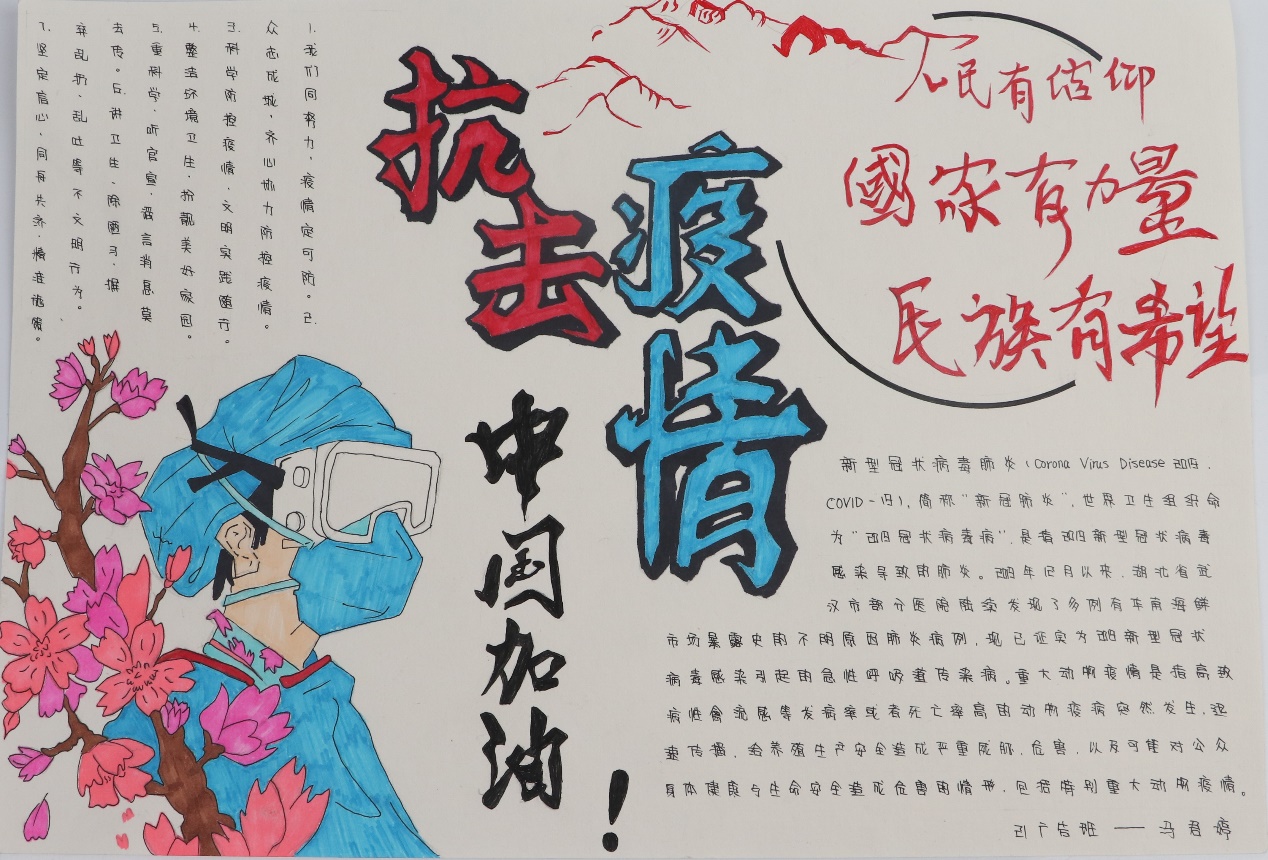 抗击
疫情
中国加油！
人民有信仰
國家有力量
民族有希望
1. 我们同努力，疫情定可防。2.
众志成城，齐心协力防控疫情。
3. 科学防控疫情、文明实践随行。
4. 整洁环境卫生，扮靓美好家园。
5. 重科学，听官宣，谣言消息莫
去传。6. 讲卫生、除陋习，摒
弃乱扔、乱吐等不文明行为。
7. 坚定信心，同舟共济，精准施策。
新型冠状病毒肺炎（Corona Virus Disease 2019，
COVID-19），简称“新冠肺炎”，世界卫生组织命
为“2019冠状病毒病”，是指2019新型冠状病毒
感染导致的肺炎。2019年12月以来，湖北省武
汉市部分医院陆续发现了多例有华南海鲜
市场暴露史的不明原因肺炎病例，现已证实为2019新型冠状
病毒感染引起的急性呼吸道传染病。重大动物疫情是指高致
病性禽流感等发病率或者死亡率高的动物疫病突然发生，迅
速传播，给养殖生产安全造成严重威胁、危害，以及可能对公众
身体健康与生命安全造成危害的情形，包括特别重大动物疫情。
21广告班 —— 马君婷